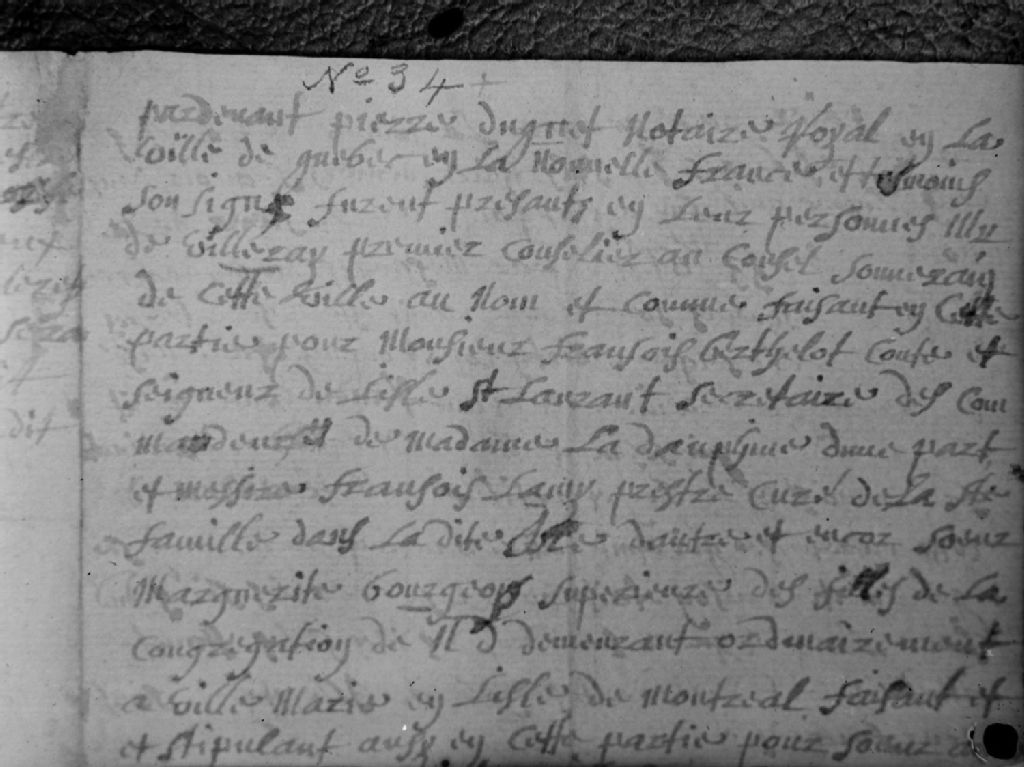 No 34
pardevant pierre duquet Notaire Royal en La
ville de quebec en La Nouvelle france et tesmoins
sousignés furent presants en Leur personnes Mr
de villeray premier Conselier au Consel souverain
de Cette ville au Nom et Comme faisant en Cette
partie pour Monsieur fransois berthelot Conte et
seigneur de Lisle St Laurant secretaire des Com
mandemens de Madame La dauphine dune part
et messire fransois Lamy prestre Curé de La Ste
famille dans La dite Isle dautre et encor soeur
Marguerite bourgeoys superieure des filles de La
Congregation de N D demeurant ordinairement
a ville Marie en Lisle de Montreal faisant et
et stipulant ausy en Cette partie pour soeur